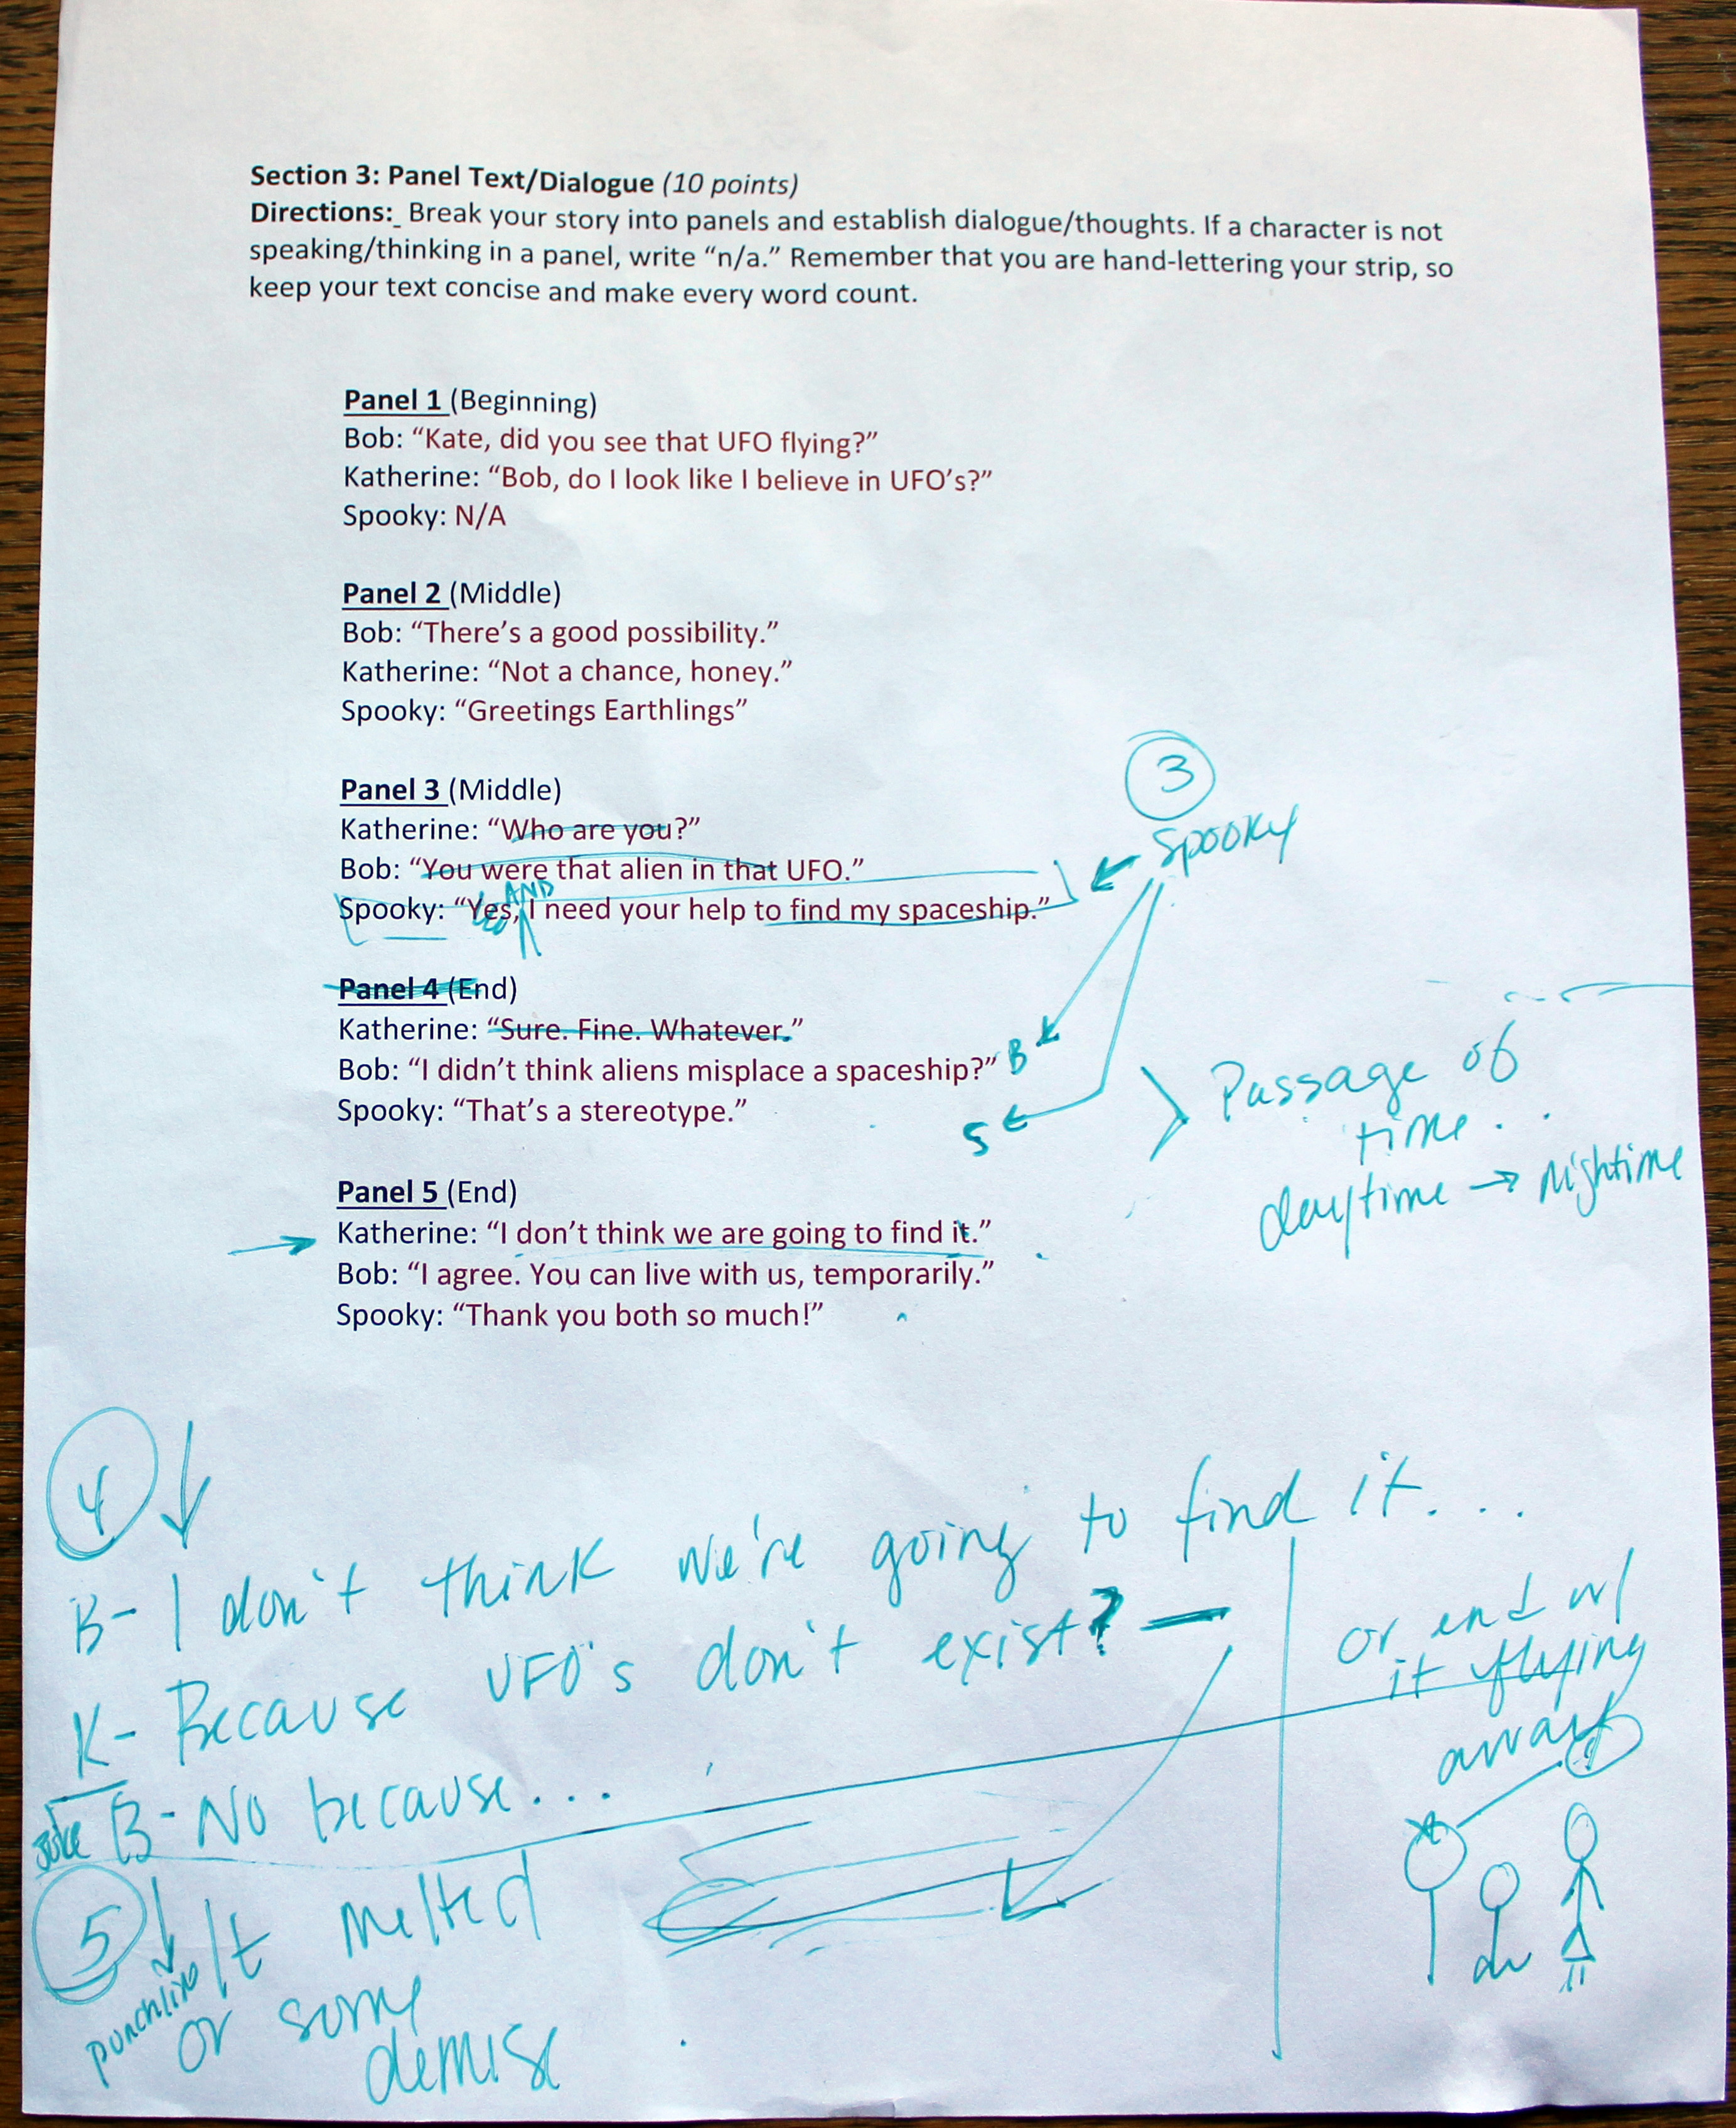 Section 3: Panel Text/Dialogue (10 points)
Directions: Break your story into panels and establish dialogue/thoughts. If a character is not
speaking/thinking in a panel, write “n/a.” Remember that you are hand-lettering your strip, so
keep your text concise and make every word count.
Panel 1 (Beginning)
Bob: “Kate, did you see that UFO flying?”
Katherine: “Bob, do I look like I believe in UFO’s?”
Spooky: N/A
Panel 2 (Middle)
Bob: “There’s a good possibility.”
Katherine: “Not a chance, honey.”
Spooky: “Greetings Earthlings”
Panel 3 (Middle)
Katherine: “Who are you?”
Bob: “You were that alien in that UFO.”
AND
Spooky: “Yes, I need your help to find my spaceship.”
3
Spooky
Panel 4 (End)
Katherine: “Sure. Fine. Whatever.”
Bob: “I didn’t think aliens misplace a spaceship?” B
Spooky: “That’s a stereotype.”
S
Passage of
time...
daytime → nightime
Panel 5 (End)
Katherine: “I don’t think we are going to find it.”
Bob: “I agree. You can live with us, temporarily.”
Spooky: “Thank you both so much!”
4
B- I don't think we're going to find it....
K- Because UFO's don't exist? —
B- No because...
joke
5
punchline
It melted
or some
demise
or end w/
it flying
away